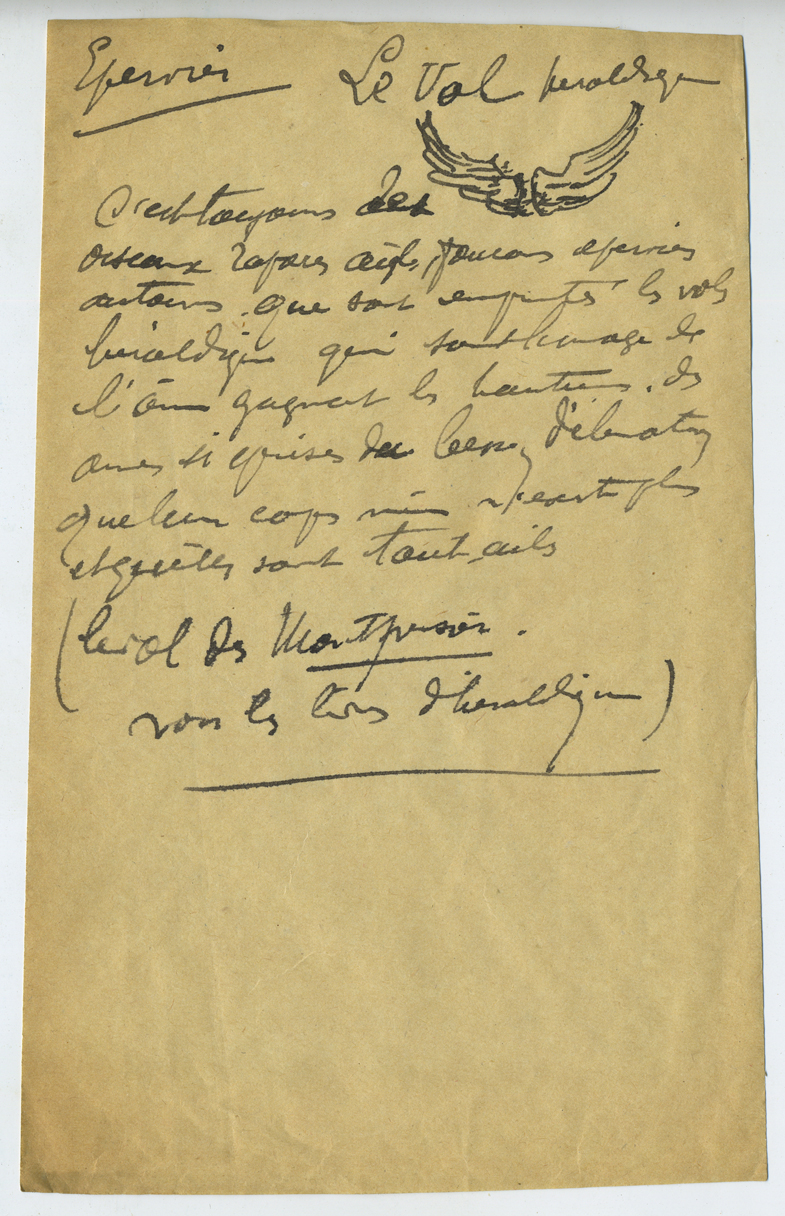 Epervier Le Vol heraldique
C'est toujours des
oiseaux rapaces aigle, faucons eperviers
autours. que sont empruntés les vols
héraldique qui sont l'image de
l'âme gagnant les hauteurs. des
ames si éprises de d'élévation
que leur corps même n'existe plus
et qu'elles sont tout ailes
(le vol des Montpensier.
voir les livres d'heraldique)